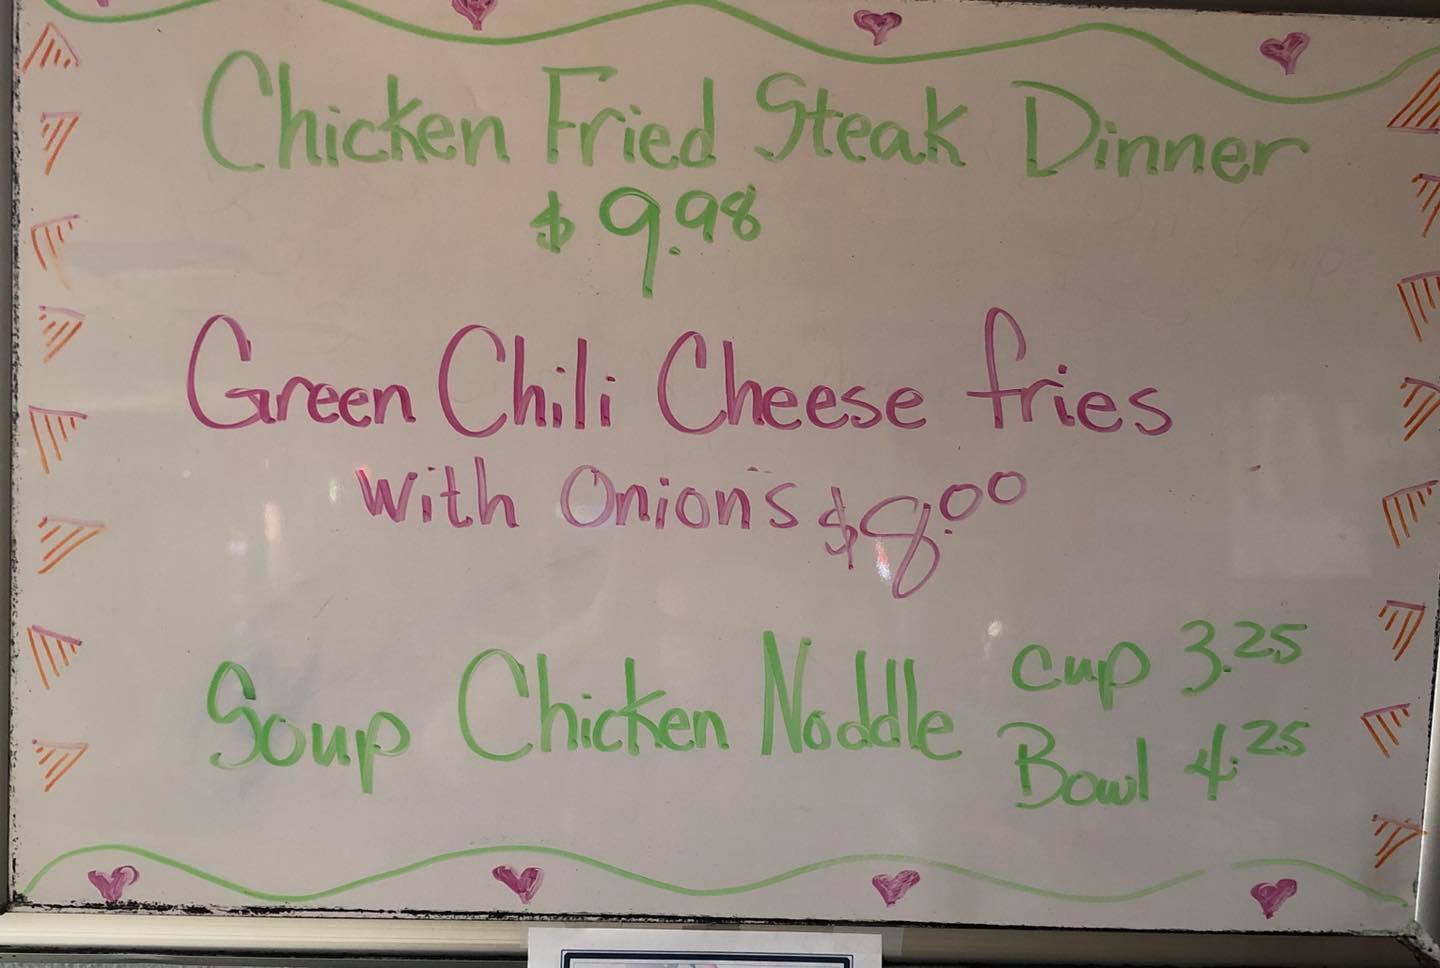 Chicken Fried Steak Dinner
$9.98
Green Chili Cheese fries
with Onions $8.00
Soup Chicken Noddle cup 3.25
Bowl 4.25